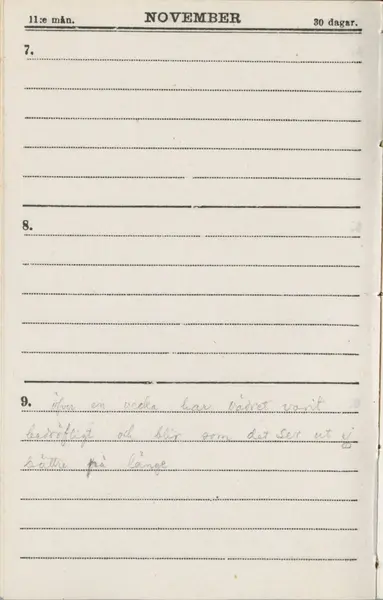 11:e mån. NOVEMBER 30 dagar.
7.
8.
9. Öfver en vecka har vädret varit
bedröfligt och blir som det ser ut ej
bättre på länge